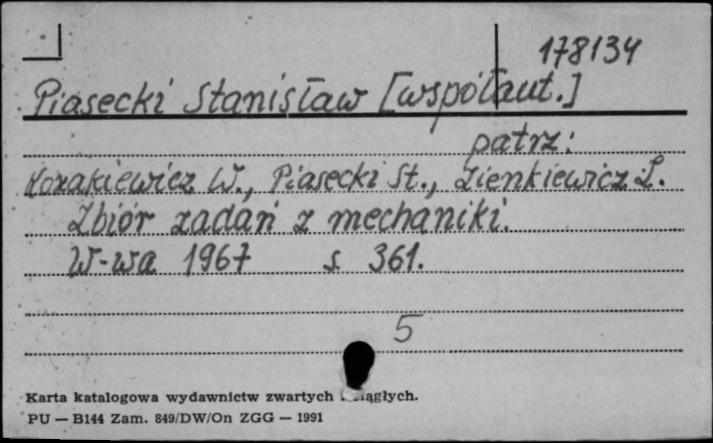 178134
Piasecki Stanisław [współaut.]
patrz:
Kozakiewicz W., Piasecki St., Zienkiewicz L.
Zbiór zadań z mechaniki.
W-wa 1967 s 361.
5
Karta katalogowa wydawnictw zwartych i ciągłych.
PU — B144 Zam. 849/DW/On ZGG — 1991